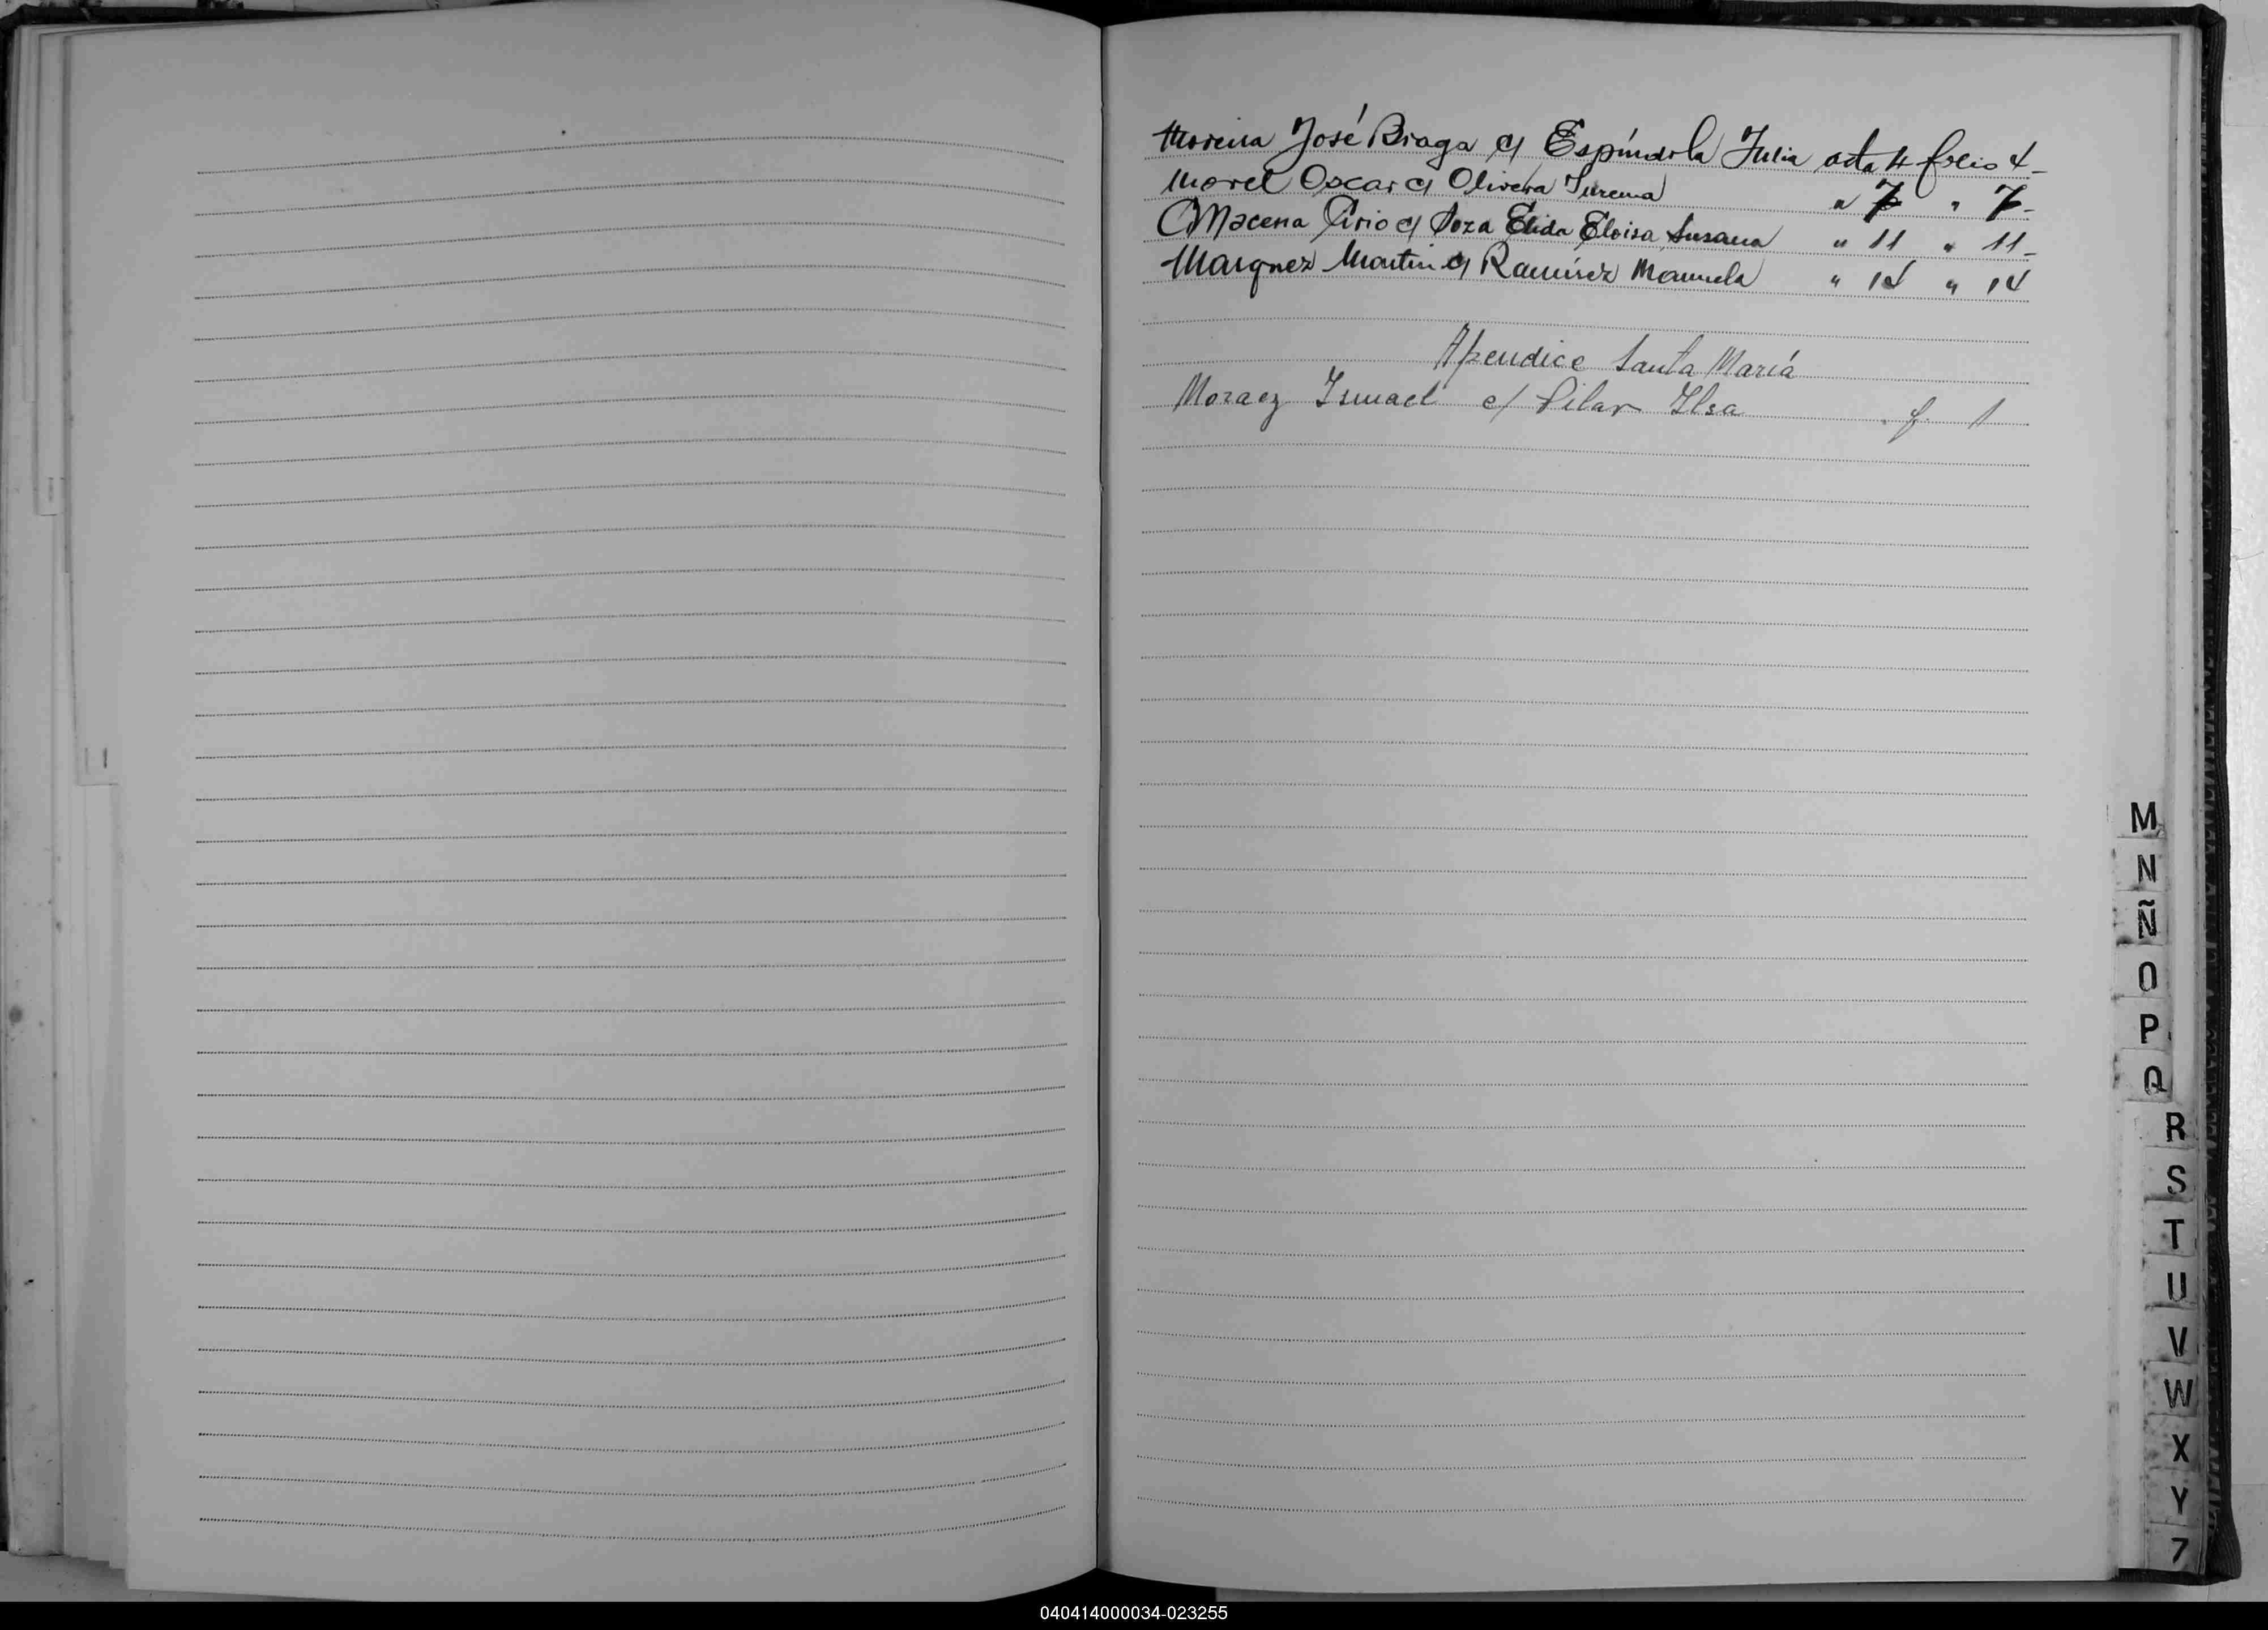 Moreira José Braga c/ Espíndola Julia acta 4 folio 4-
Morel Oscar c/ Olivera Jurema " 7 " 7-
Macena Cirio c/ Soza Elida Eloisa Susana " 11 " 11-
Marquez Martin c/ Ramírez Manuela " 14 " 14
Apendice Santa María
Moraez Ismael c/ Pilar Ilsa f. 1
M
N
Ñ
O
P
Q
R
S
T
U
V
W
X
Y
Z
040414000034-023255